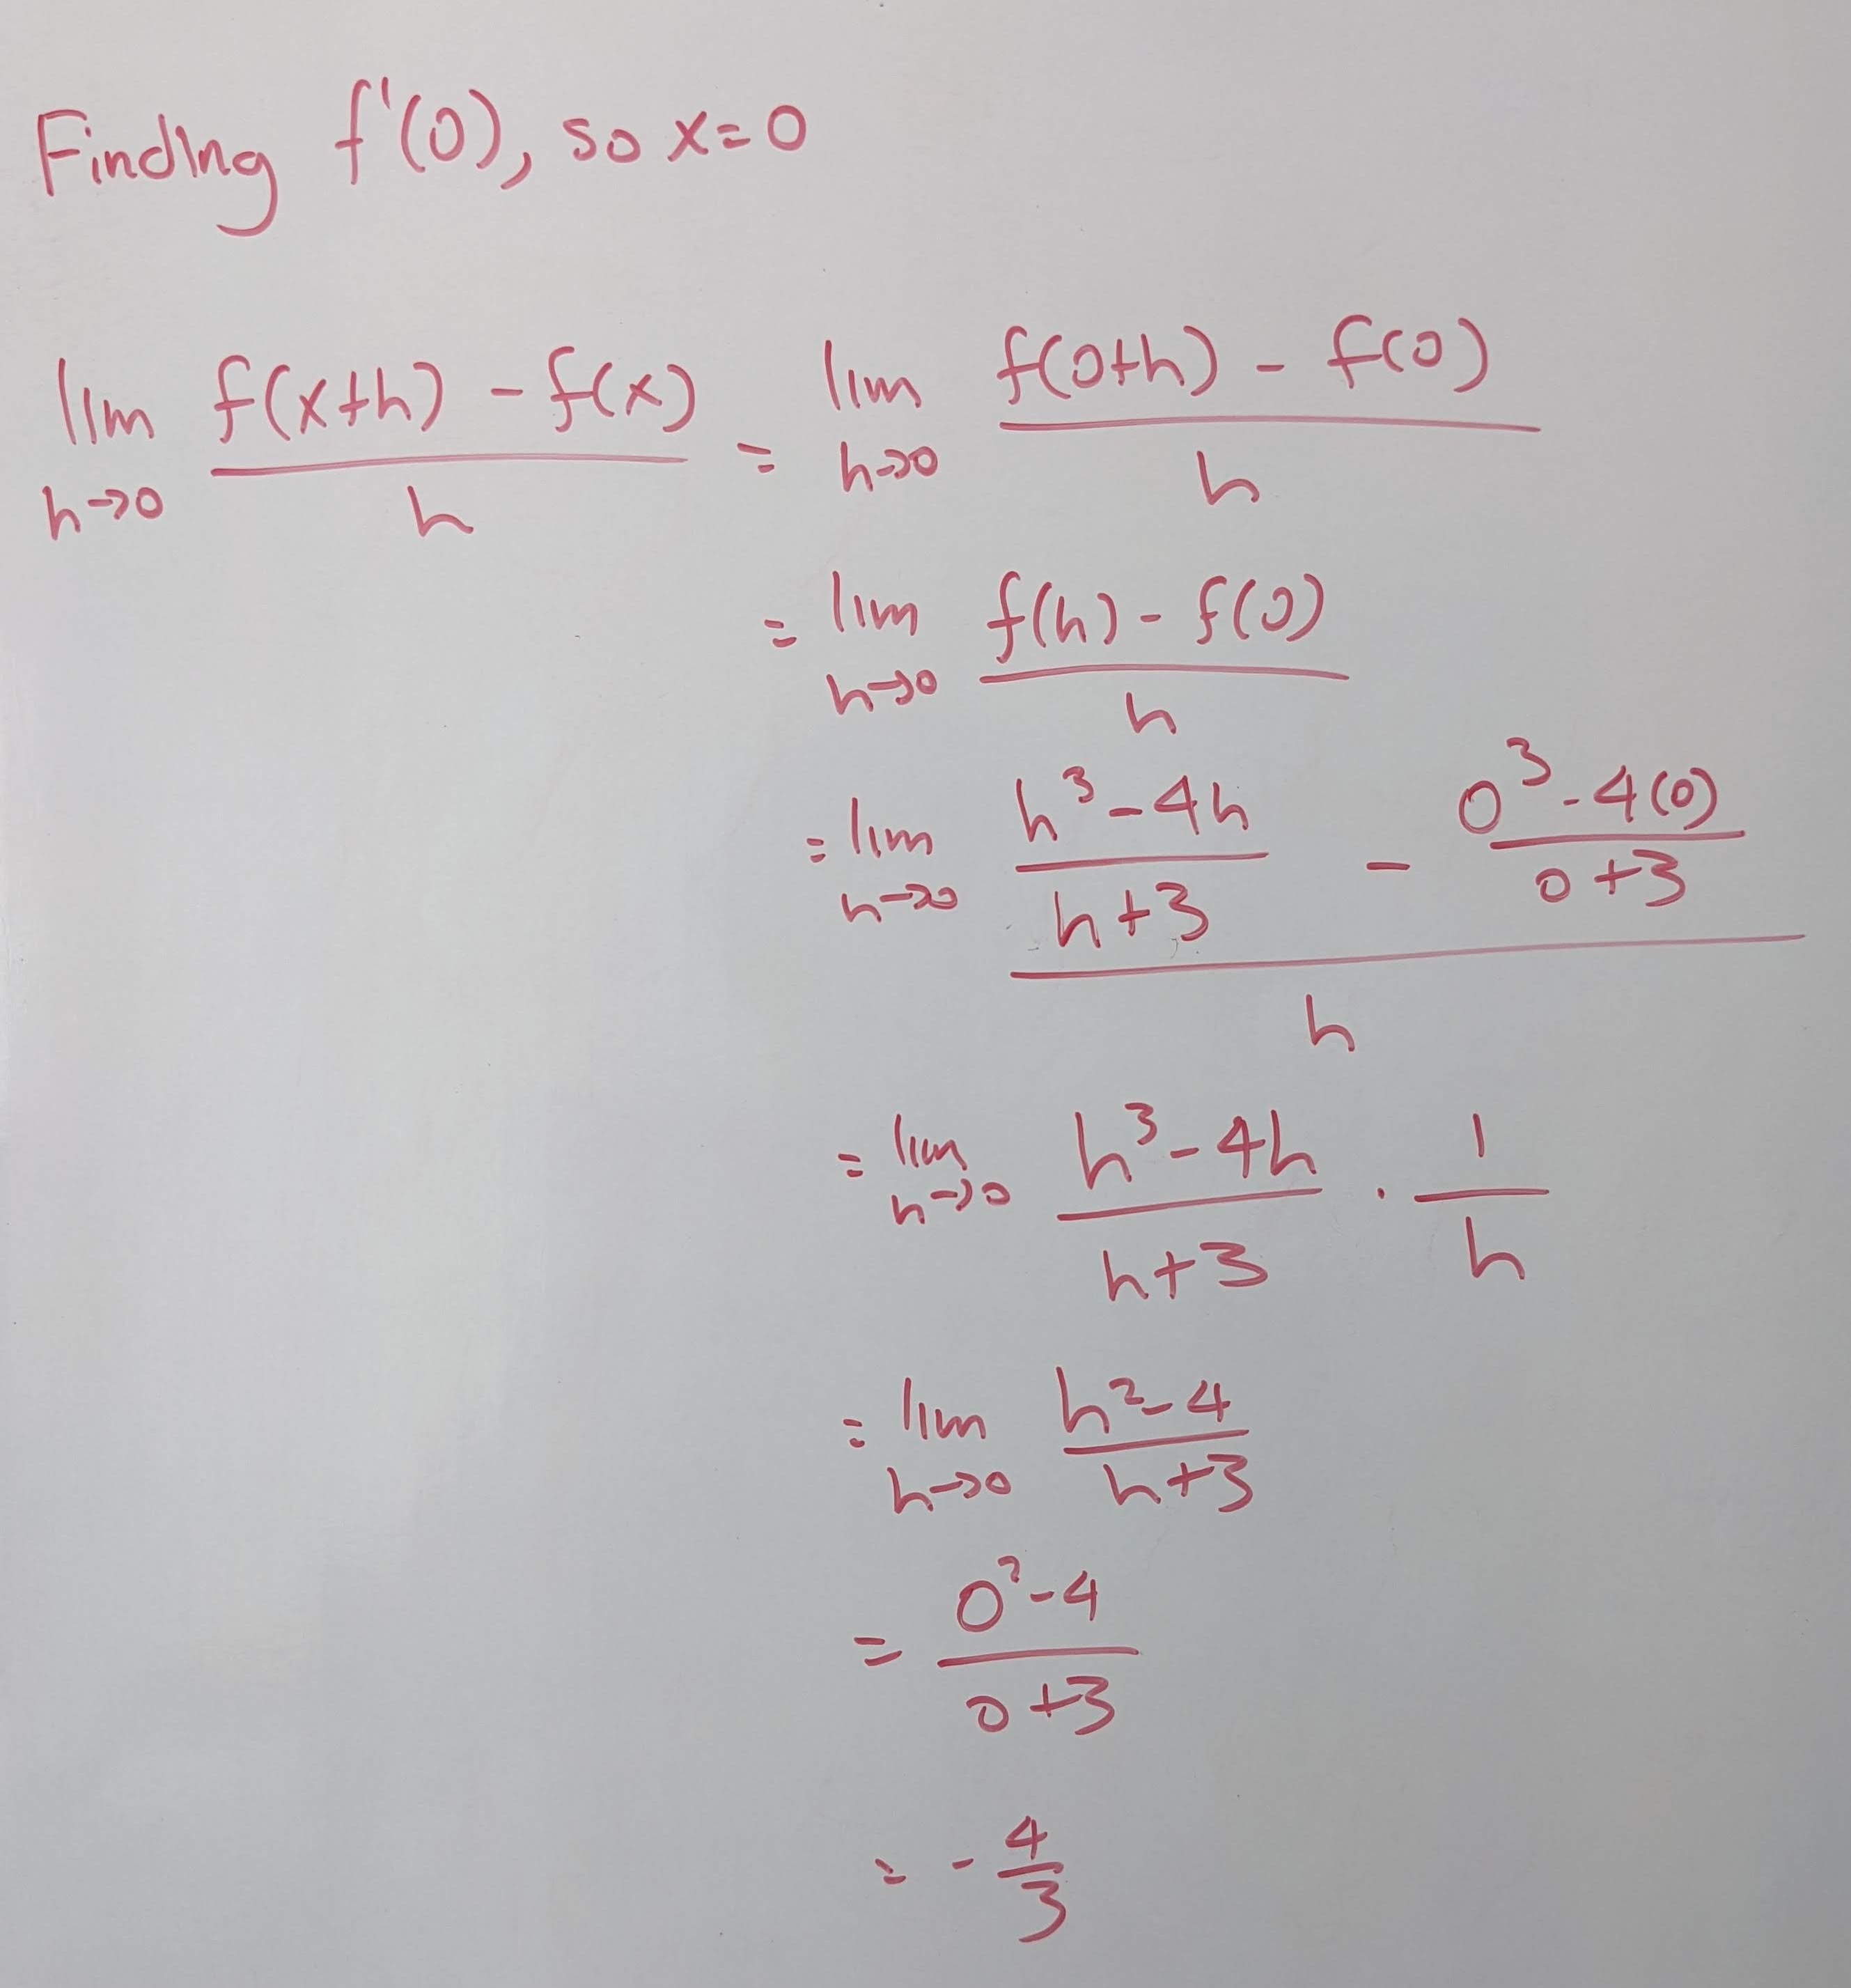 Finding f'(0), so x=0
lim h→0 (f(x+h) - f(x))/h = lim h→0 (f(0+h) - f(0))/h
= lim h→0 (f(h) - f(0))/h
= lim h→0 ((h³-4h)/(h+3) - (0³-4(0))/(0+3))/h
= lim h→0 (h³-4h)/(h+3) · 1/h
= lim h→0 (h²-4)/(h+3)
= (0²-4)/(0+3)
= -4/3